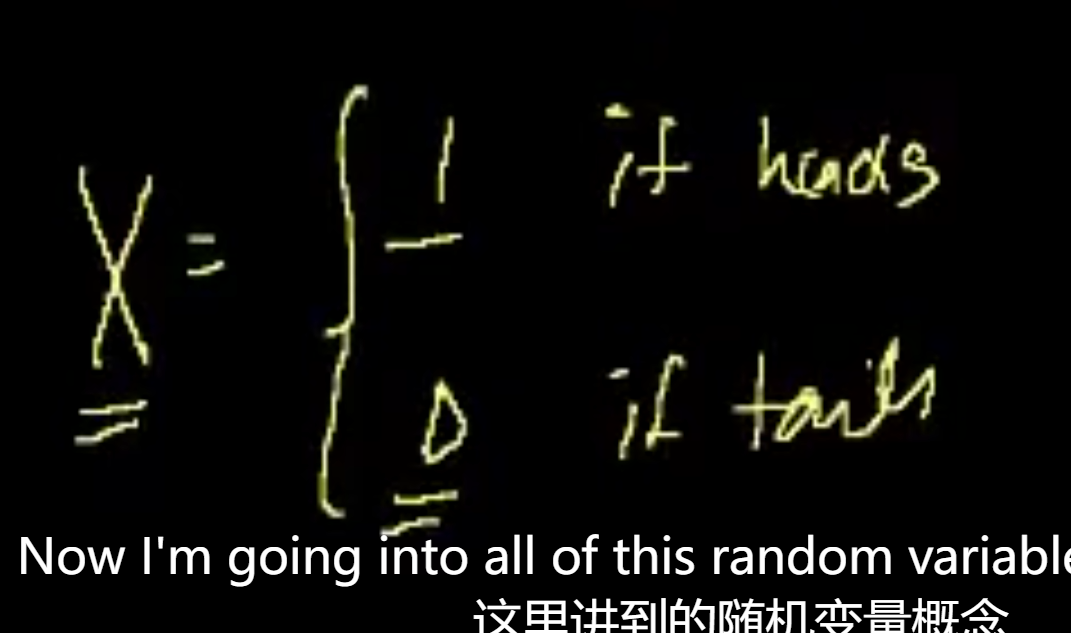 X = { 1 if heads
0 if tails
Now I'm going into all of this random variable
这里讲到的随机变量概念